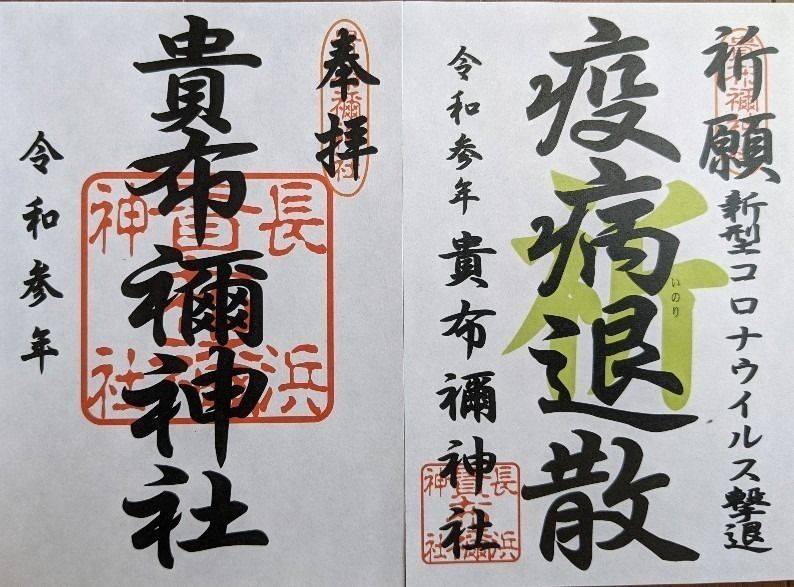 奉拝
貴布禰神社
令和参年
長浜
貴布禰
神社
祈願
新型コロナウイルス撃退
疫病退散
祈
いのり
令和参年
貴布禰神社
長浜
神社